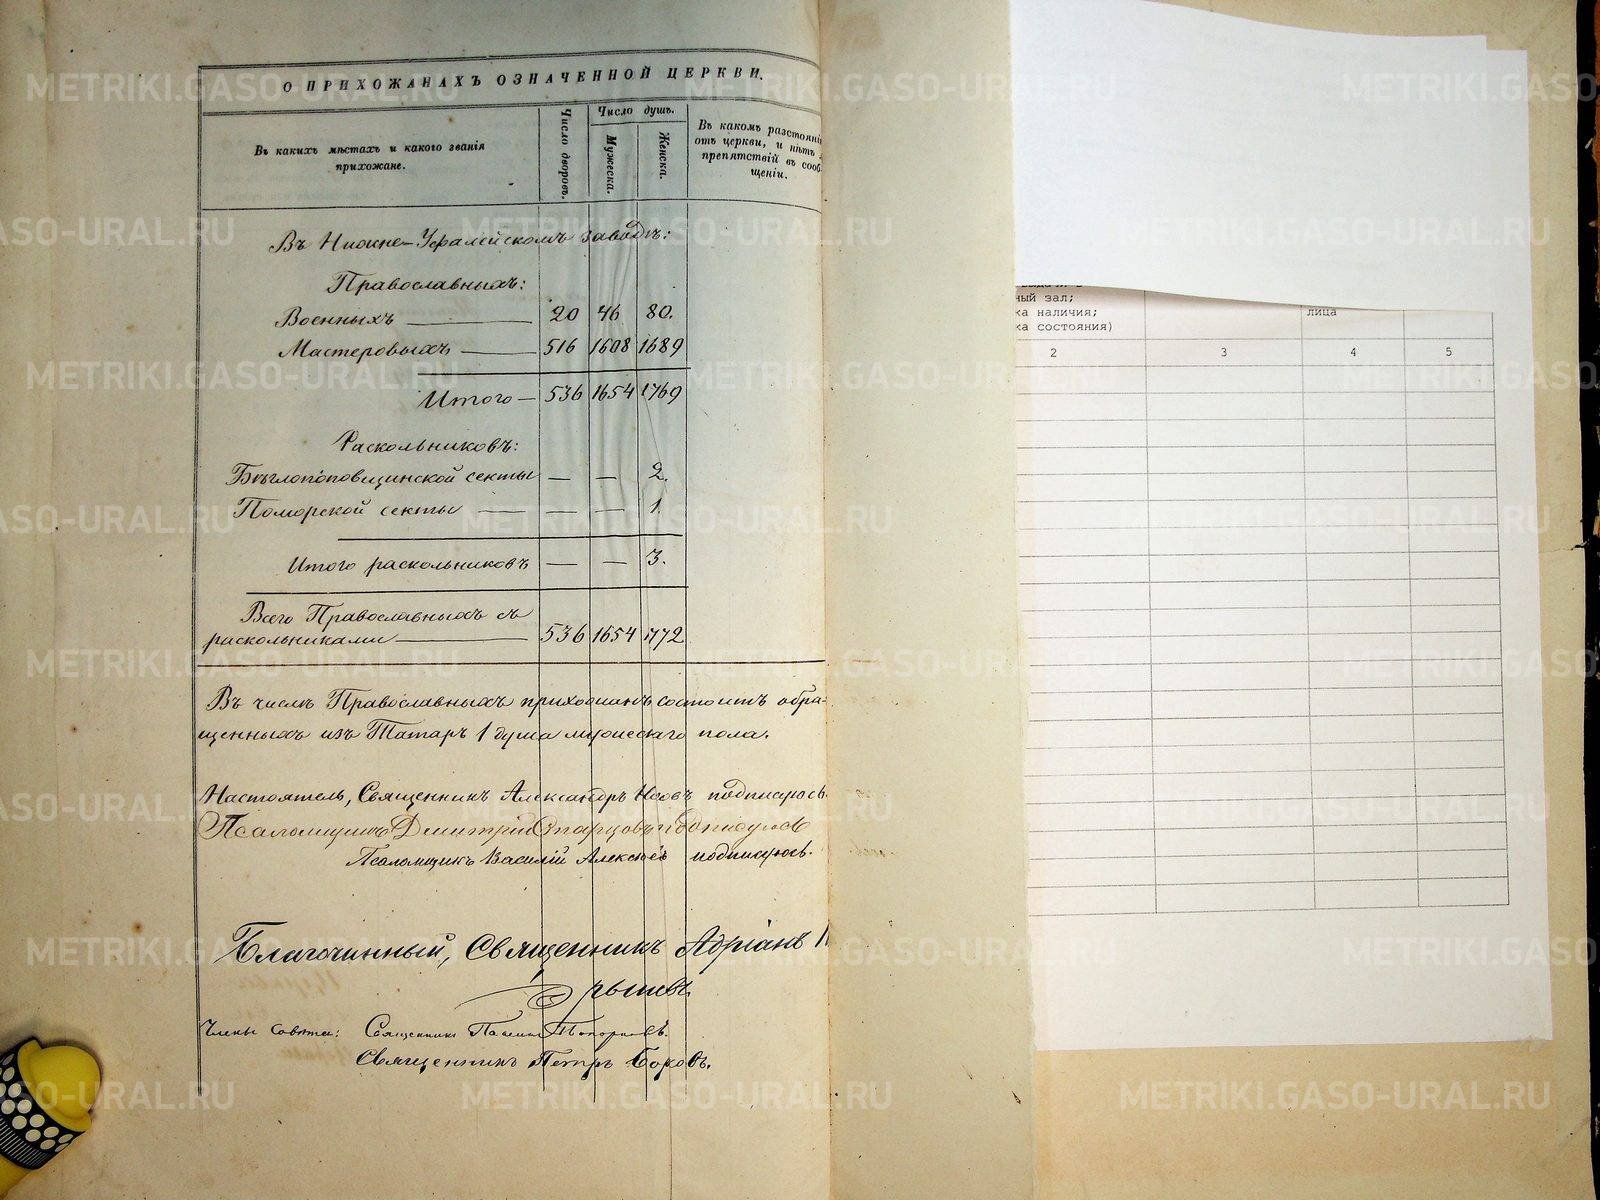 О ПРИХОЖАНАХЪ ОЗНАЧЕННОЙ ЦЕРКВИ.
Въ какихъ мѣстахъ и какого званія прихожане.
Число дворовъ.
Число душъ.
Мужеска.
Женска.
Въ какомъ разстояні
отъ церкви, и нѣтъ
препятствій въ сооб-
щеніи.
Въ Нижне-Уфалейскомъ заводѣ:
Православныхъ:
Военныхъ 20 46 80.
Мастеровыхъ 516 1608 1689
Итого — 536 1654 1769
Раскольниковъ:
Бѣглопоповщинской секты — — 2.
Поморской секты — — 1.
Итого раскольниковъ — — 3.
Всего Православныхъ съ
раскольниками 536 1654 1772
Въ числѣ Православныхъ прихожанъ состоитъ обра-
щенныхъ изъ Татаръ 1 душа мужескаго пола.
Настоятель, Священникъ Александръ подписуюсь.
Псаломщикъ Димитрій подписуюсь
Псаломщикъ Василій Алексѣевъ подписуюсь.
Благочинный, Священникъ Адріанъ
Члены Совѣта: Священникъ Топорковъ.
Священникъ Петръ Боковъ.
ный зал;
ка наличия;
ка состояния)
лица
2 3 4 5
METRIKI.GASO-URAL.RU